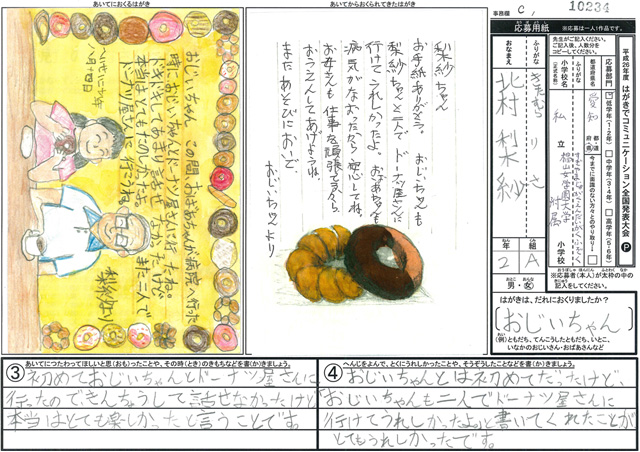 あいてにおくるはがき
あいてからおくられてきたはがき
事務欄 C, 10234
応募用紙
※応募は一人1作品です。
平成26年度 はがきでコミュニケーション全国発表大会 P
先生がご記入ください。
ご記入後、人数分を
コピーしてください。
応募部門
低学年(1・2年)
中学年(3・4年)
高学年(5・6年)
都道府県名
愛知
小学校名
(正式名称)
私立
椙山女学園大学
附属
小学校
今までに面識のない方々とのやり取り
おなまえ
ふりがな
きたむら りさ
北村 梨紗
年 組
2 A
おとこ
男・女
※応募者(本人)が太枠の中の
記入をしてください。
はがきは、だれにおくりましたか?
おじいちゃん
(例)ともだち、てんこうしたともだち、
いなかのおじいさん・おばあさんなど
おじいちゃん
この間、おばあちゃんが病院へ行った
時におじいちゃんとドーナツ屋さんに行ったね。
本当はとてもたのしかったよ。
また二人で
ドーナツ屋さんに行こうね。
梨紗より
梨紗ちゃん
お手紙ありがとう。おじいちゃんも
梨紗ちゃんと二人でドーナツ屋さんに
行けてうれしかったよ。おばあちゃんも
病気がなおったから安心してね。
お母さんも仕事を頑張って居るから
おうえんしてあげようね。
またあそびにおいで
おじいちゃんより
③ あいてにつたわってほしいと思(おも)ったことや、その時(とき)のきもちなどを書(か)きましょう。
初めておじいちゃんとドーナツ屋さんに
行ったのできんちょうして話せなかったけど
本当はとても楽しかったと言うことです。
④ へんじをよんで、とくにうれしかったことや、そうぞうしたことなどを書(か)きましょう。
おじいちゃんとは初めてだったけど、
おじいちゃんも二人でドーナツ屋さんに
行けてうれしかったよ。と書いてくれたことが
とてもうれしかったです。